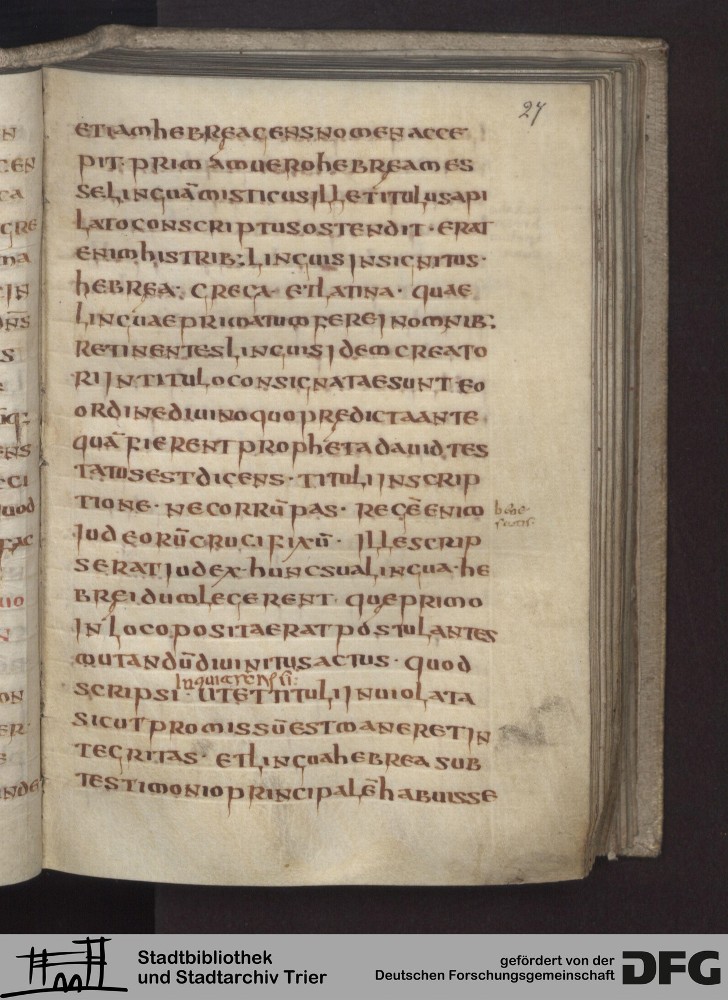 27
etiam hebrea gens nomen acce
pit· primam uero hebream es
se linguā misticus ille titulus a pi
lato conscriptus ostendit · erat
enim his trib; linguis insignitus·
hebrea· greca et latina · quae
linguae primatum fere in omnib;
retinentes linguis idem creato
ri in titulo consignatae sunt eo
ordine diuino quo predicta ante
quā fierent propheta dauid tes
tatus est dicens · tituli inscrip
tione · ne corrūpas · regē enim
iudeorū crucifixū · ille scrip
serat iudex · hunc sua lingua · he
brei dum legerent que primo
in loco posita erat postulantes
mutandū diuinitus actus · quod
scripsi · ut et tituli inuiolata
sicut promissū est maneret in
tegritas · et lingua hebrea sub
testimonio principalē habuisse
Stadtbibliothek
und Stadtarchiv Trier
gefördert von der
Deutschen Forschungsgemeinschaft
DFG